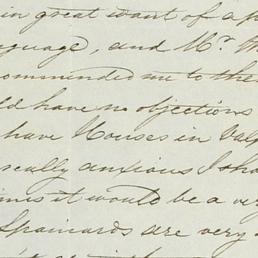 in great want of a
nguage, and Mr.
commended me to the
ld have no objections
have Houses in Valp
really anxious I sho
imes it would be a ver
Spaniards are very